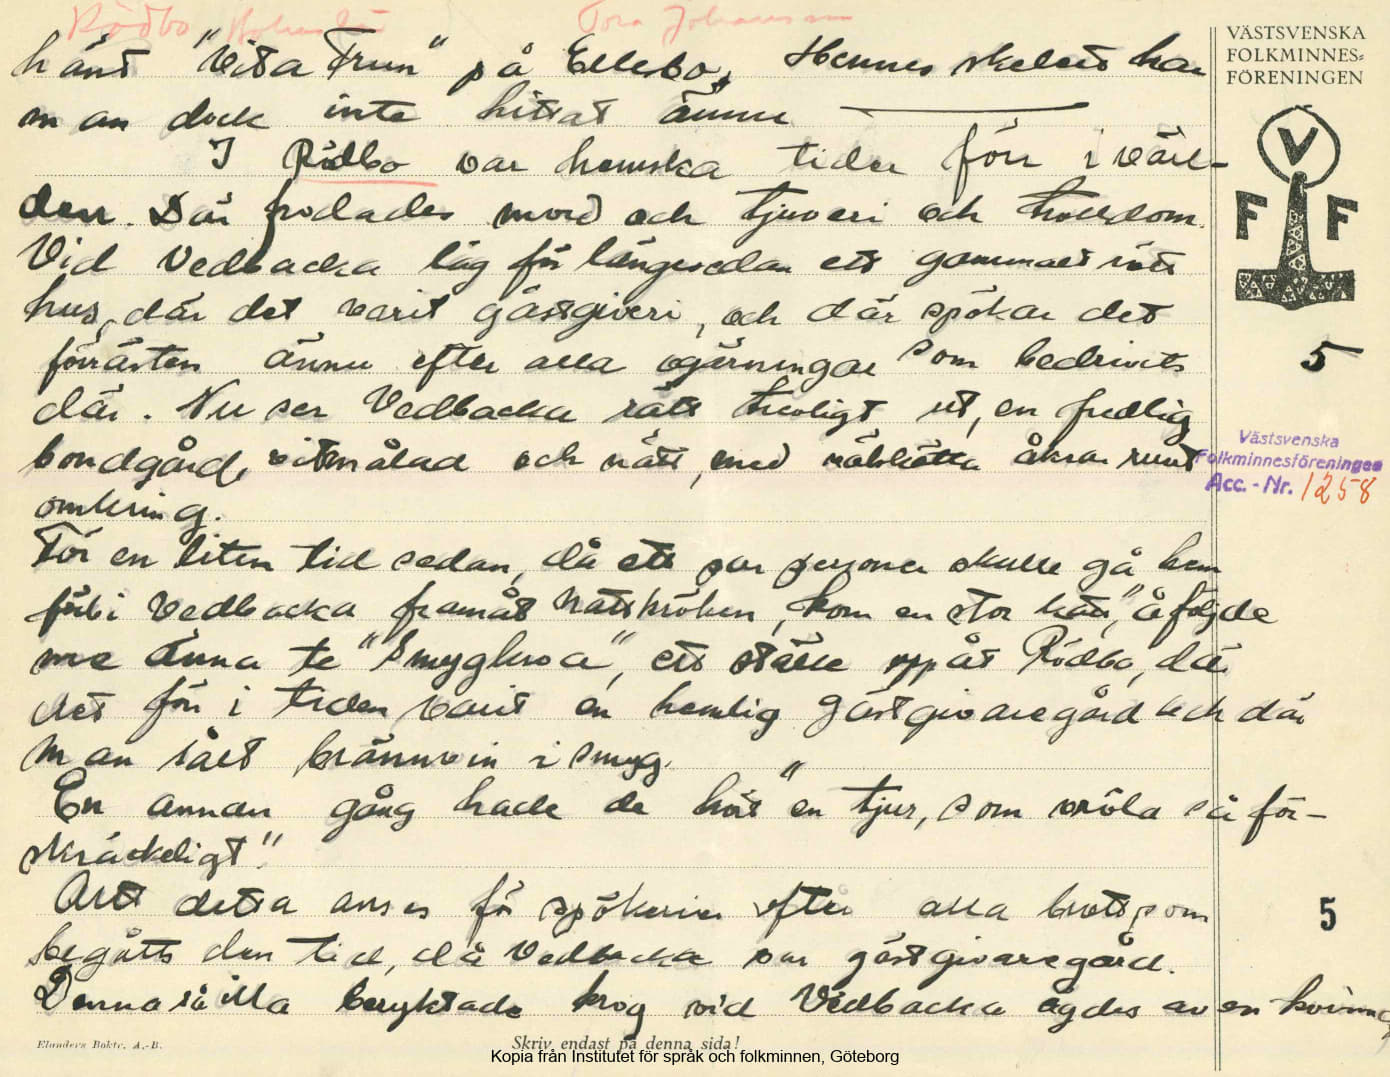 Rödbo Tora Johansson
VÄSTSVENSKA
FOLKMINNES=
FÖRENINGEN
V
F F
hänt "Vita Frun" på Ellesbo. Hennes skelett har
man dock inte hittat ännu
I Rödbo var hemska tider förr i värl-
den. Där frodades mord och tjuveri och trolldom.
Vid Vedbacka låg för längesedan ett gammalt rött
hus, där det varit gästgiveri, och där spökar det
5
förresten ännu efter alla ogärningar som bedrivits
där. Nu ser Vedbacka rätt trevligt ut, en fredlig
bondgård, vitmålad och nätt, med välskötta åkrar runt
omkring.
Västsvenska
Folkminnesföreningen
Acc.-Nr. 1258
För en liten tid sedan, då ett par personer skulle gå hem
förbi Vedbacka framåt nattkröken, kom en stor katt, "å följde
me änna te "Smygkroa", ett ställe uppåt Rödbo, där
det för i tiden varit en hemlig gästgivaregård och där
man sålt brännvin i smyg.
En annan gång hade de hört "en tjur, som vröla så för-
skräckeligt".
Allt detta anses för spökerier efter alla brott som
5
begåtts den tid, då Vedbacka var gästgivaregård.
Denna så illa beryktade krog vid Vedbacka ägdes av en kvinna,
Elanders Boktr. A.-B.
Skriv endast på denna sida!
Kopia från Institutet för språk och folkminnen, Göteborg